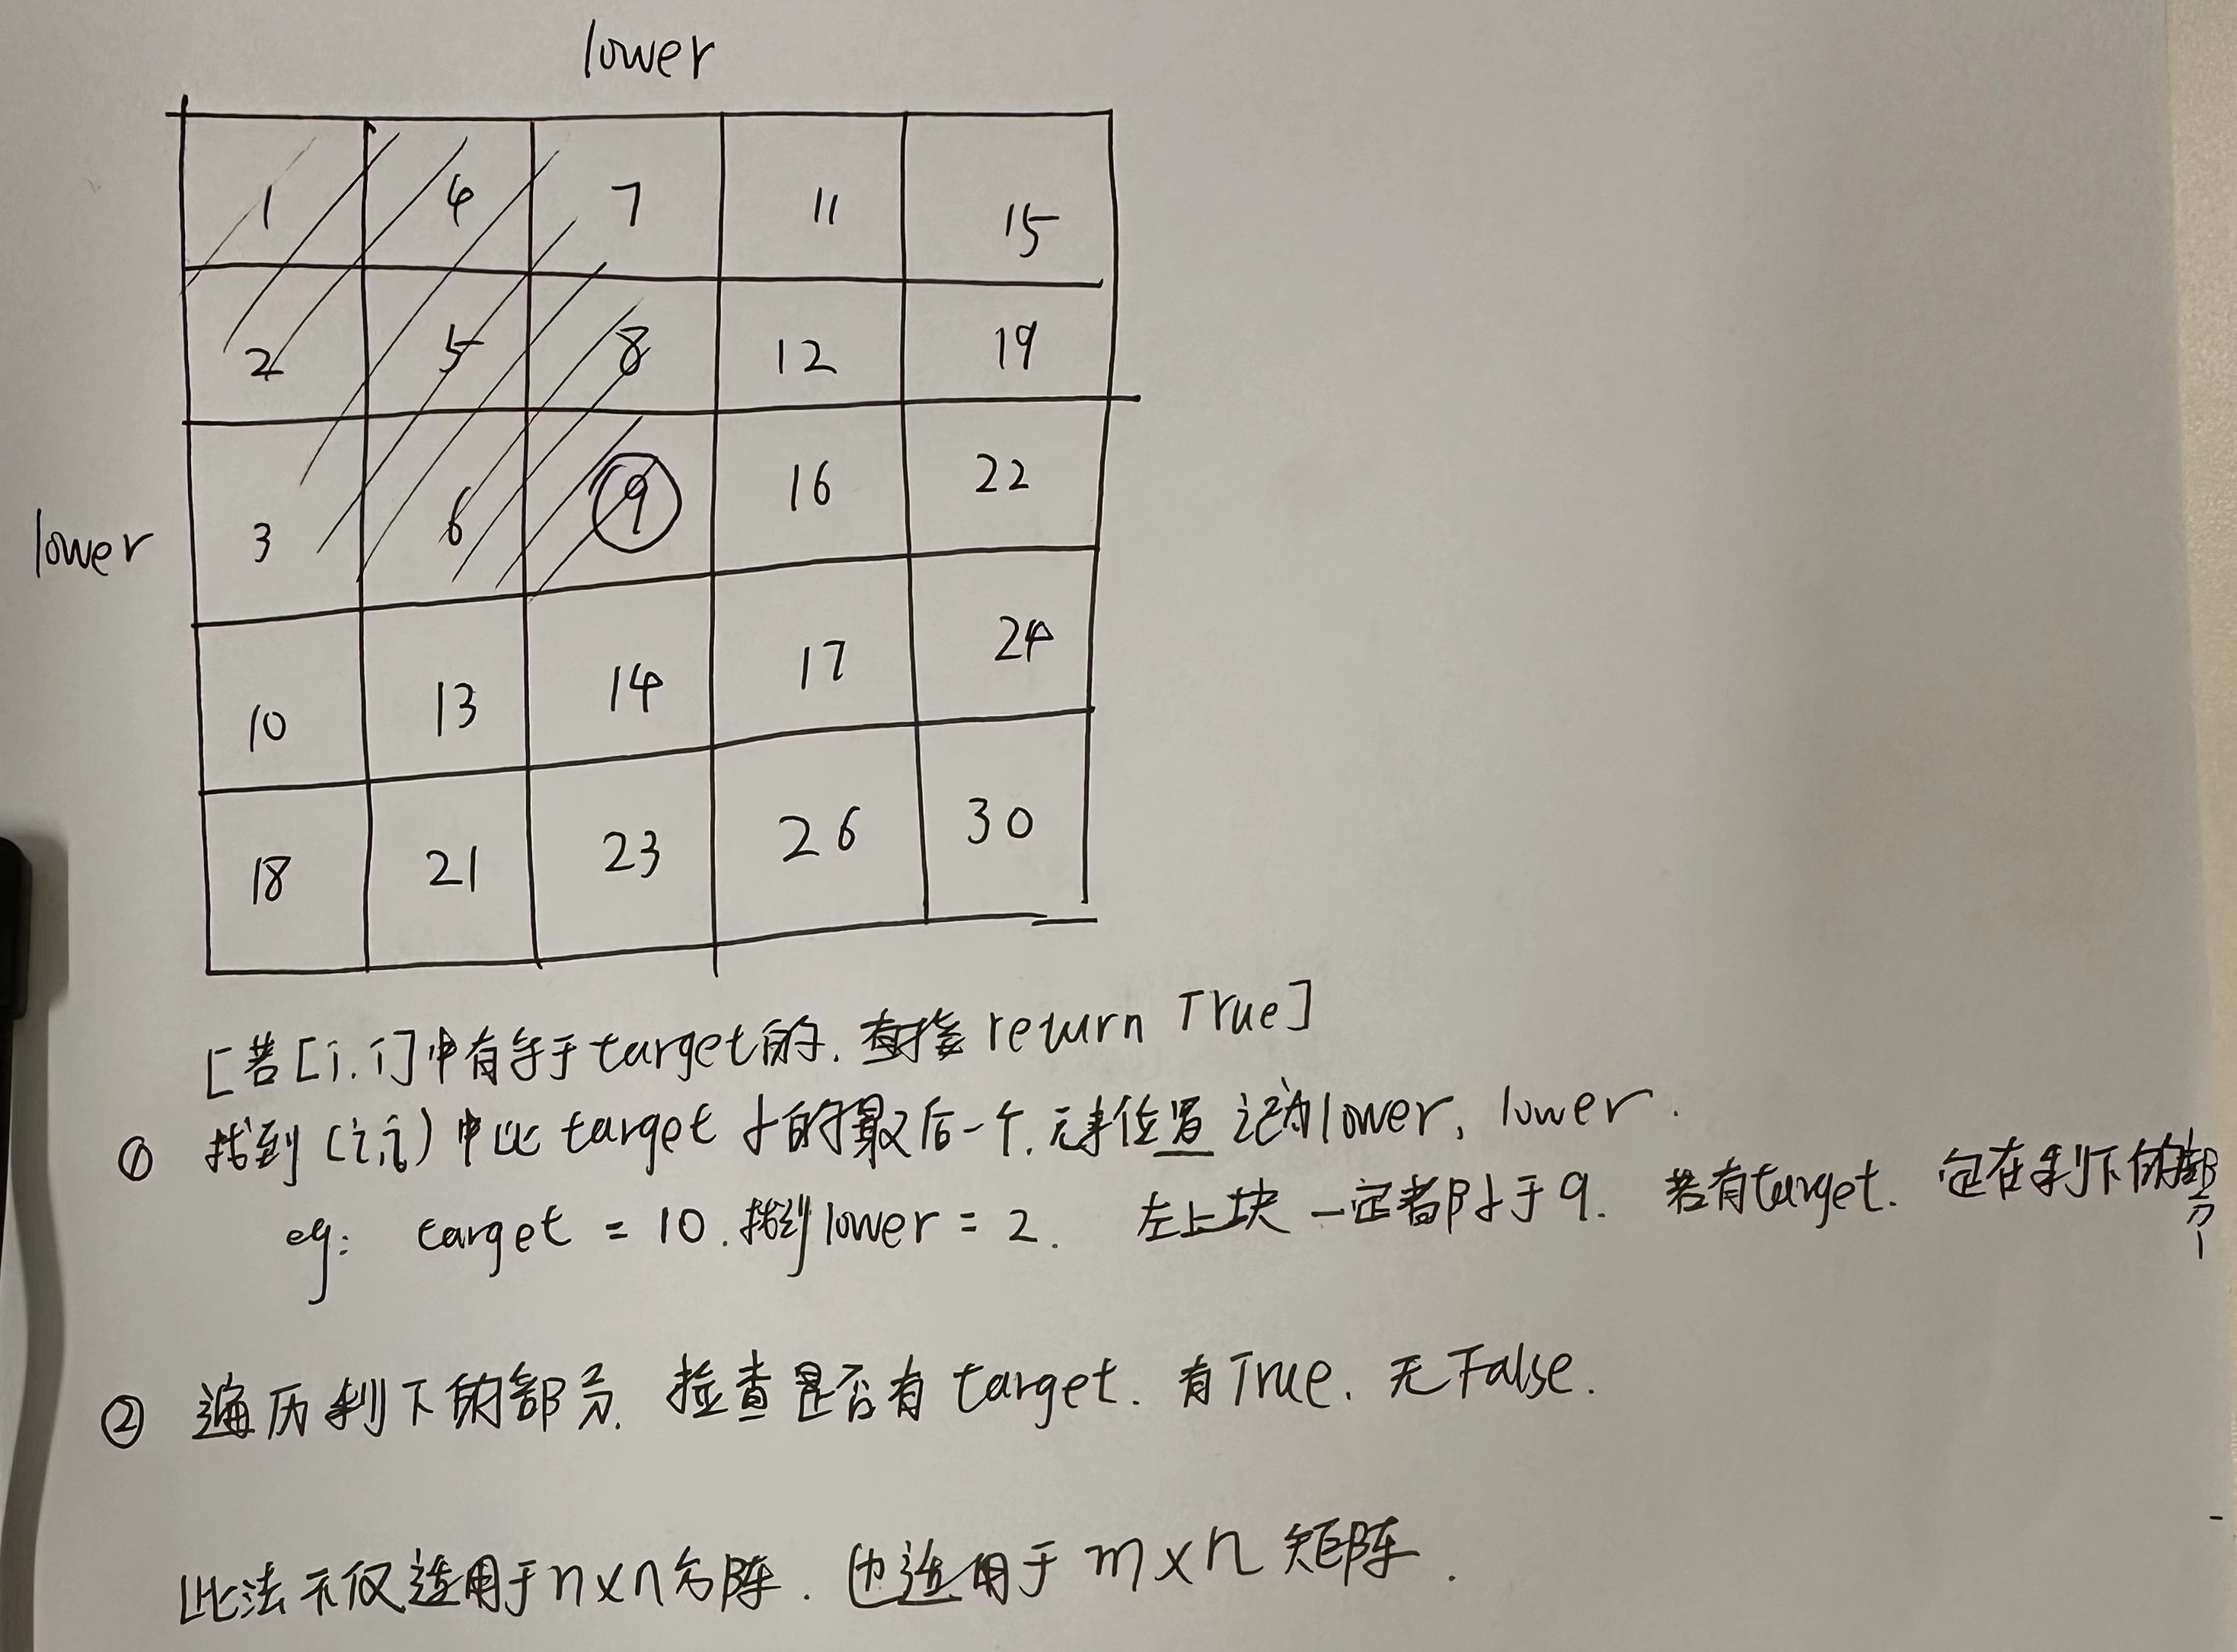 lower
1 4 7 11 15
2 5 8 12 19
lower 3 6 9 16 22
10 13 14 17 24
18 21 23 26 30
[若[i.i]中有等于target的.直接return True]
① 找到(i,i)中比target小的最后一个.元素位置记为lower, lower.
eg: target = 10.找到lower = 2. 左上块一定都小于9. 若有target. 也在剩下的部分
② 遍历剩下的部分.检查是否有target.有True.无False.
此法不仅适用于n×n方阵.也适用于m×n矩阵.